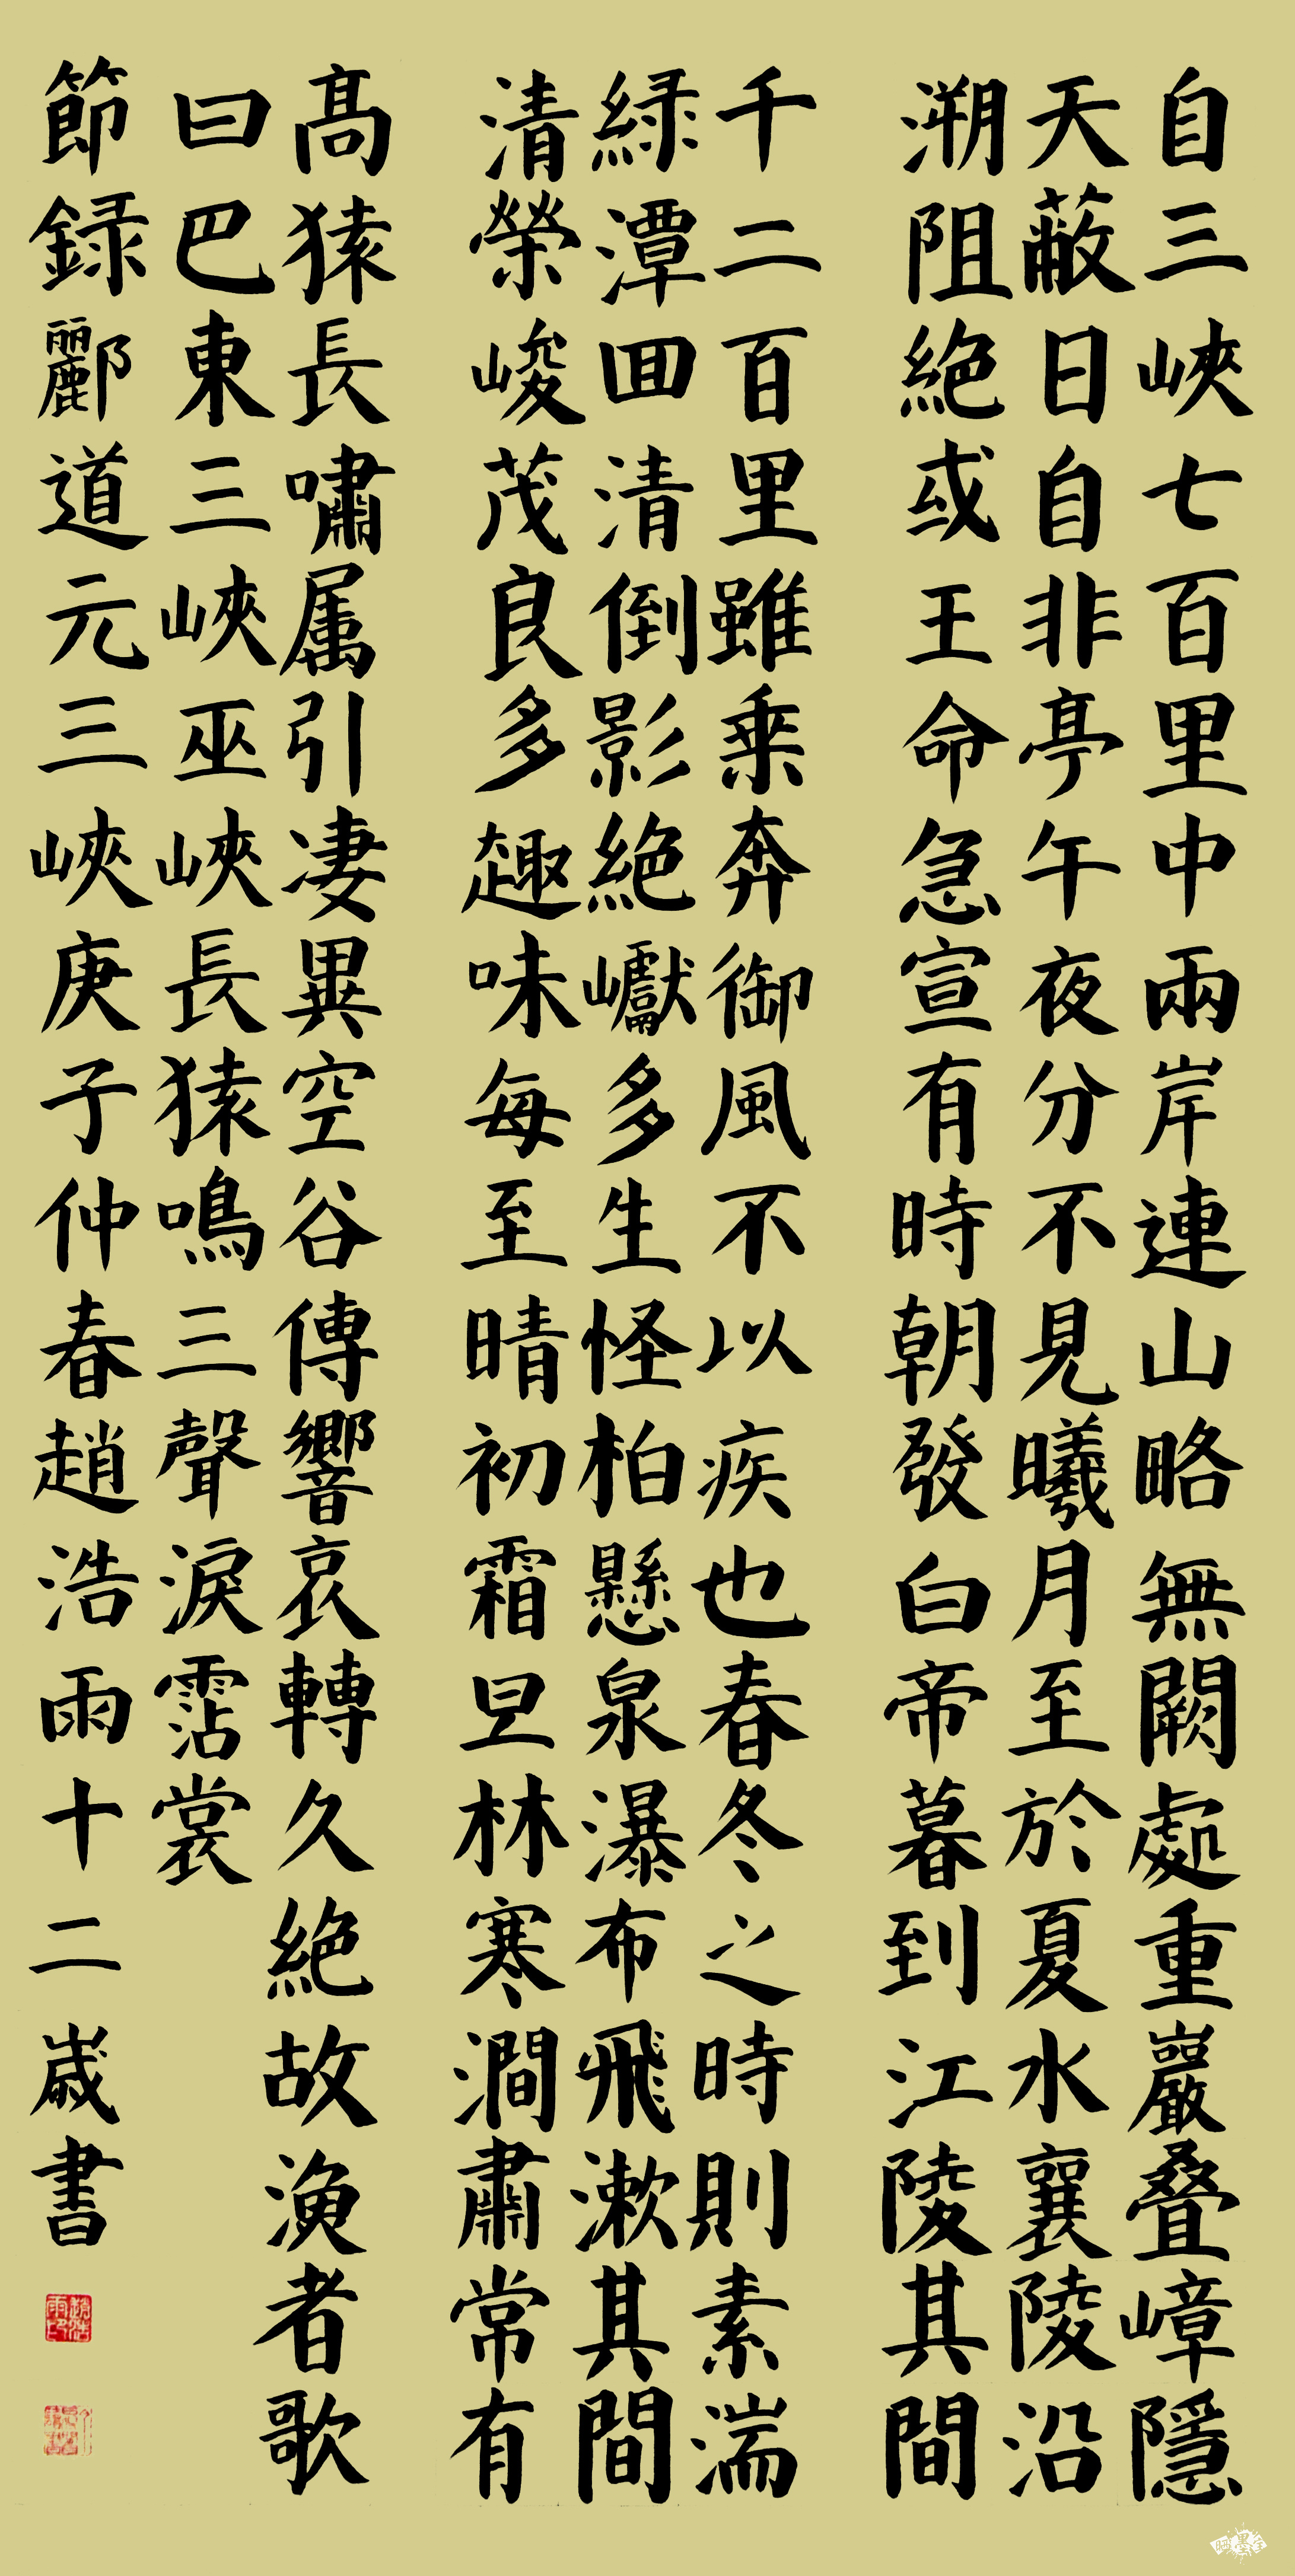 自三峽七百里中兩岸連山略無闕處重巖叠嶂隱
天蔽日自非亭午夜分不見曦月至於夏水襄陵沿
溯阻絶或王命急宣有時朝發白帝暮到江陵其間
千二百里雖乗奔御風不以疾也春冬之時則素湍
緑潭回清倒影絶巘多生怪柏懸泉瀑布飛漱其間
清榮峻茂良多趣味每至晴初霜旦林寒澗肅常有
髙猿長嘯属引凄異空谷傳響哀轉久絶故漁者歌
曰巴東三峽巫峽長猿鳴三聲淚霑裳
節録酈道元三峽庚子仲春趙浩雨十二歲書
趙浩雨印